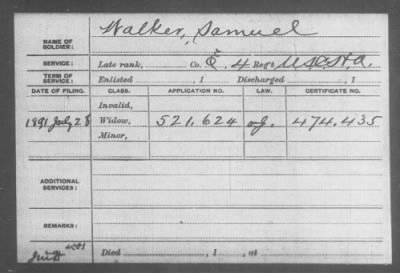 NAME OF SOLDIER: Walker, Samuel
SERVICE: Late rank, Co. E, 4 Reg't U.S.C.H.A.
TERM OF SERVICE: Enlisted , 1 Discharged , 1
DATE OF FILING. CLASS. APPLICATION NO. LAW. CERTIFICATE NO.
Invalid,
1891 July 28 Widow, 521.624 474.435
Minor,
ADDITIONAL SERVICES:
REMARKS:
Died , 1 , at